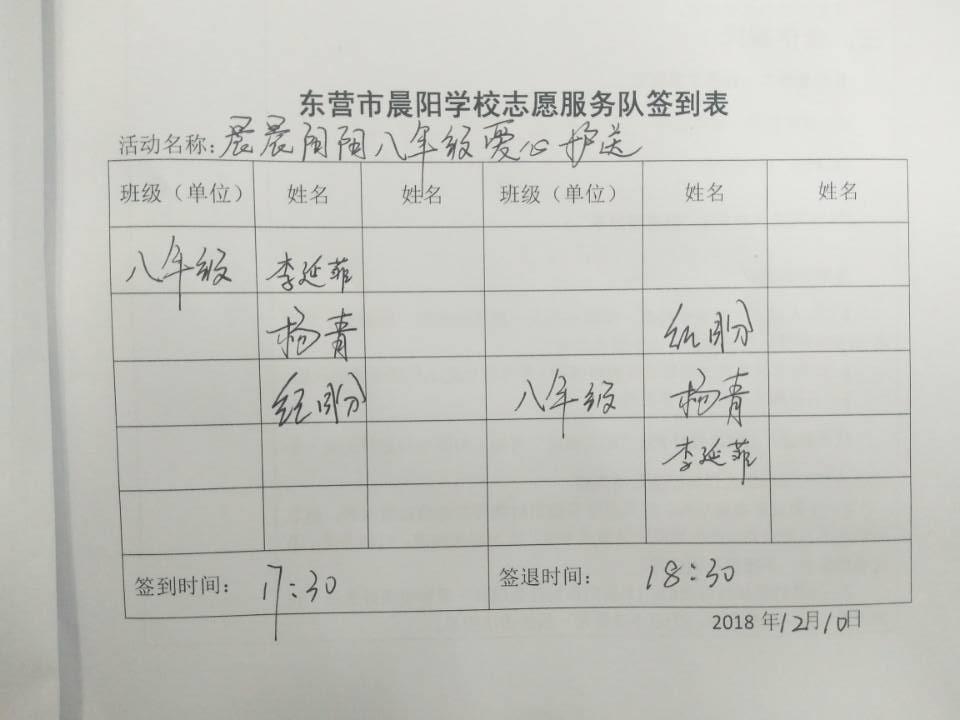 东营市晨阳学校志愿服务队签到表
活动名称：晨晨阳阳八年级爱心护送
班级（单位） 姓名 姓名 班级（单位） 姓名 姓名
八年级 李延菲
杨青
八年级 杨青
李延菲
签到时间： 17:30 签退时间： 18:30
2018年12月10日